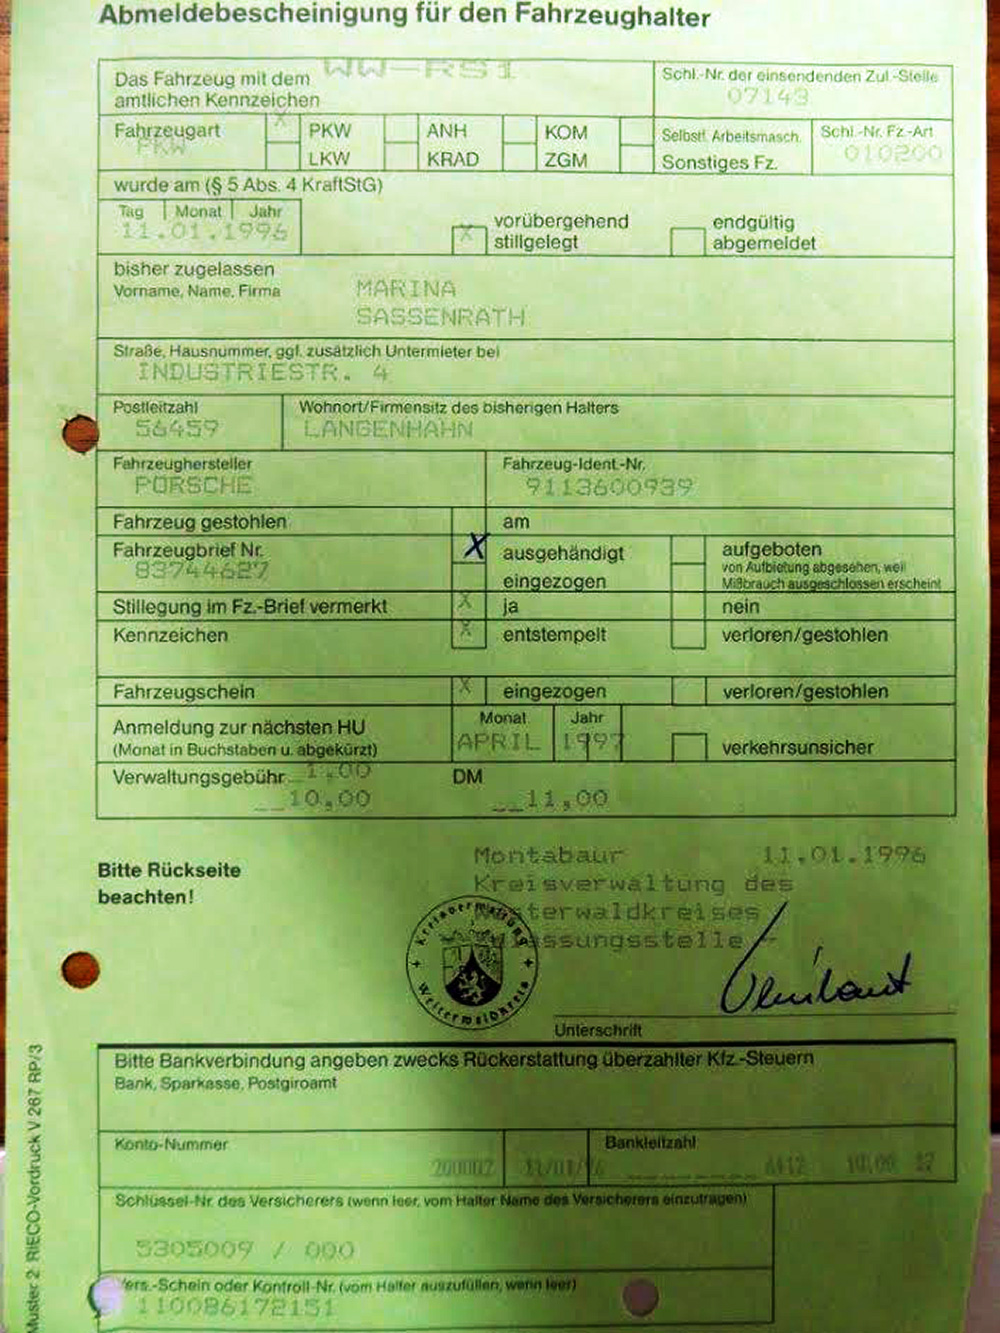 Abmeldebescheinigung für den Fahrzeughalter
Das Fahrzeug mit dem amtlichen Kennzeichen WW-RS1
Schl.-Nr. der einsendenden Zul.-Stelle
07143
Fahrzeugart PKW
X PKW ANH KOM
LKW KRAD ZGM
Selbstf. Arbeitsmasch.
Sonstiges Fz.
Schl.-Nr. Fz.-Art
010200
wurde am (§ 5 Abs. 4 KraftStG)
Tag Monat Jahr
11.01.1996
X vorübergehend stillgelegt
endgültig abgemeldet
bisher zugelassen
Vorname, Name, Firma
MARINA
SASSENRATH
Straße, Hausnummer, ggf. zusätzlich Untermieter bei
INDUSTRIESTR. 4
Postleitzahl
56459
Wohnort/Firmensitz des bisherigen Halters
LANGENHAHN
Fahrzeughersteller
PORSCHE
Fahrzeug-Ident.-Nr.
9113600939
Fahrzeug gestohlen am
Fahrzeugbrief Nr.
83744627
X ausgehändigt
eingezogen
aufgeboten
von Aufbietung abgesehen, weil
Mißbrauch ausgeschlossen erscheint
Stillegung im Fz.-Brief vermerkt X ja nein
Kennzeichen X entstempelt verloren/gestohlen
Fahrzeugschein X eingezogen verloren/gestohlen
Anmeldung zur nächsten HU
(Monat in Buchstaben u. abgekürzt)
Monat Jahr
APRIL 1997
verkehrsunsicher
Verwaltungsgebühr 1,00 DM
10,00 11,00
Bitte Rückseite
beachten!
Montabaur 11.01.1996
Kreisverwaltung des
Westerwaldkreises
Zulassungsstelle -
Kreisverwaltung
Westerwaldkreis
Unterschrift
Bitte Bankverbindung angeben zwecks Rückerstattung überzahlter Kfz.-Steuern
Bank, Sparkasse, Postgiroamt
Konto-Nummer
Bankleitzahl
Schlüssel-Nr. des Versicherers (wenn leer, vom Halter Name des Versicherers einzutragen)
5305009 / 000
Vers.-Schein oder Kontroll-Nr. (vom Halter auszufüllen, wenn leer)
110086172151
Muster 2: RIECO-Vordruck V 267 RP/3